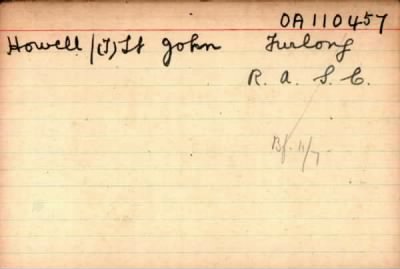 OA110457
Howell /(T) Lt John Furlong
R. A. S. C.
Bf. 11/7